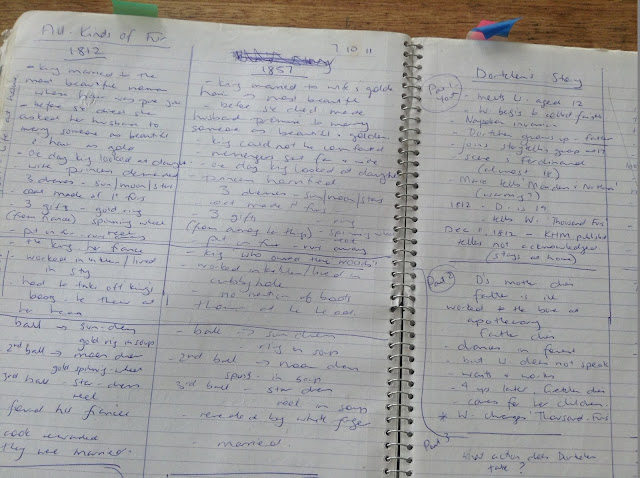 All Kinds of Fur
7 10 11
1812
- king married to the
most beautiful woman
whose hair was pure gold
- before she died she
asked her husband to
marry someone as beautiful
& hair as gold
- One day king looked at daughter
- princess
3 dresses - sun/moon/stars
- coat made of furs
3 gifts - gold ring
(from fiancé) spinning wheel
reel
- put on fur
- the king, her fiancé
- worked in kitchen / lived
in sty
- had to take off king's
boots - he threw them at
her head
ball → sun-dress
gold ring in soup
2nd ball → moon dress
gold spinning wheel
3rd ball - star dress
reel
found his fiancée
cook
they were married.
1857
- king married to wife & golden
hair - most beautiful
- before she died made
husband promise to marry
someone as beautiful & golden
- king could not be comforted
- messengers sent far & wide
- One day king looked at daughter
- princess horrified
3 dresses - sun/moon/stars
- coat made of furs
3 gifts
(from among her things) - spinning wheel
reel
- put on fur - ran away
- king who owned these woods
- worked in kitchen / lived in
cubbyhole
- no mention of boots
thrown at her head
- ball → sun-dress
ring in soup
- 2nd ball → moon dress
spinning - in soup
3rd ball - star dress
reel in soup
- revealed by white finger
- married.
Dortchen's Story
Part 1
- meets W. aged 12
- W. begins to collect fairytales
- Napoleon invasion
- Dortchen growing up - father
- joins storytelling group with
& Ferdinand
- Marie tells Maiden & No Hands
1812 - D. is 19
- tells W. Thousand Furs
Dec 1812 - KHM published
tellers not acknowledged
(stays at home)
Part 2
D's mother dies
father is ill
worked to the bone at
apothecary
Father dies
- dances in forest
- but W does not speak
- waits & works
- 4 yrs later Gretchen dies
- cares for her children.
* W. changes 'Thousand Furs'
Part 3
What action does Dortchen
take?